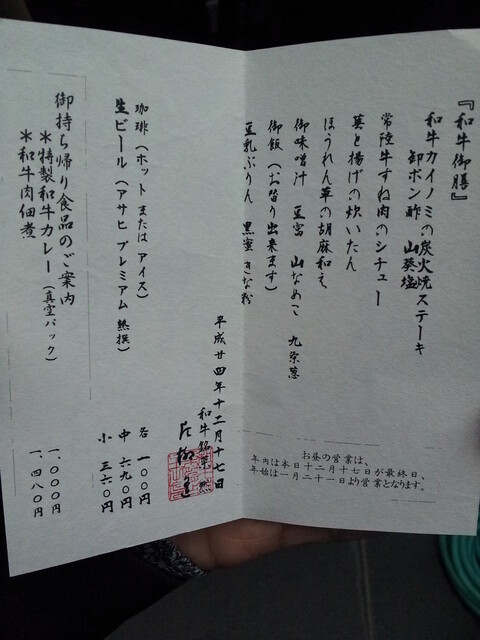 『和牛御膳』
和牛カイノミの炭火焼ステーキ
卸ポン酢 山葵塩
常陸牛すね肉のシチュー
蕪と揚げの炊いたん
ほうれん草の胡麻和え
御味噌汁 豆富 山なめこ 九条葱
御飯（お替り出来ます）
豆乳ぷりん 黒蜜きな粉
お昼の営業は、
年内は本日十二月十七日が最終日、
年始は一月二十一日より営業となります。
平成廿四年十二月十七日
和牛銘菜 然
珈琲（ホットまたはアイス） 各 一〇〇円
生ビール（アサヒ プレミアム 熟撰） 中 六九〇円
小 三六〇円
御持ち帰り食品のご案内
＊特製和牛カレー（真空パック） 一、〇〇〇円
＊和牛肉佃煮 一、四八〇円